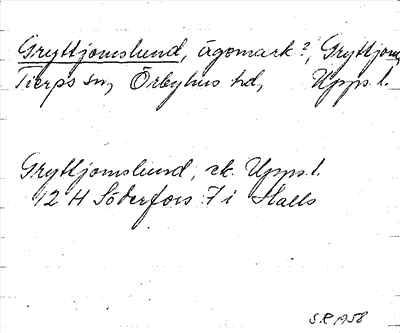 Gryttjomslund, ägomark?, Gryttjom,
Tierps sn, Örbyhus hd, Upps. l.
Gryttjomslund, ek. Upps. l.
12 H Söderfors 7 i Stalls
S.R. 1958